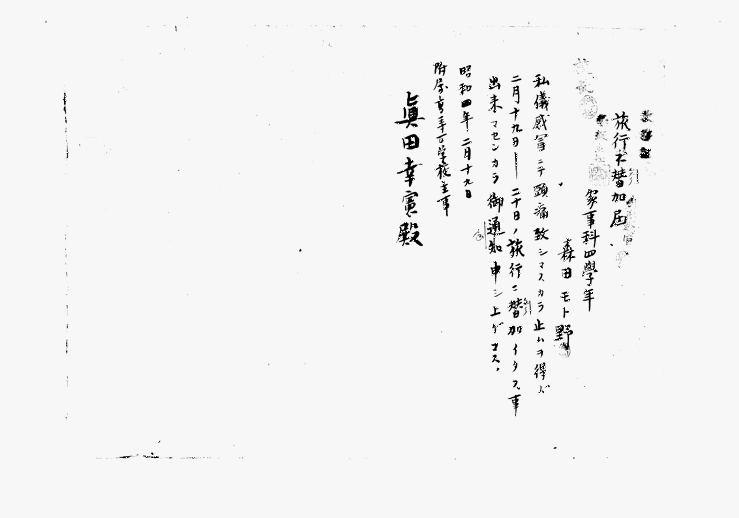 旅行不替加届
家事科四學年
森田モト野
私儀感冒ニテ頭痛致シマスカラ止ムヲ得ズ
二月十九日―二十日ノ旅行ニ替加イタス事
出来マセンカラ御通知申シ上ゲマス。
昭和四年二月十九日
附属高等女学校主事
眞田幸憲殿